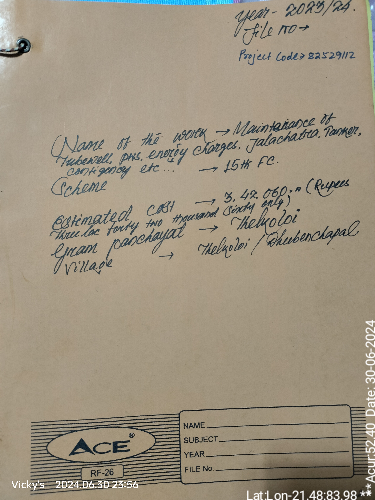 Year - 2023/24.
File No →
Project Code → 82529112
(Name of the work → Maintainance of
Tubewell, pws, energy charges, Jalachatra, Tanker,
contigency etc...
Scheme → 15th FC.
Estimated cost → 3,42,060/= (Rupees
Three lac forty two thousand sixty only)
Gram panchayat → Thelkoloi
Village → Thelkoloi / Dhubenchapal
ACE
RF-26
NAME
SUBJECT
YEAR
FILE No.
Vicky's 2024.06.30 23:56
Lat:Lon-21.48:83.98 **Acur:52.40 Date: 30-06-2024